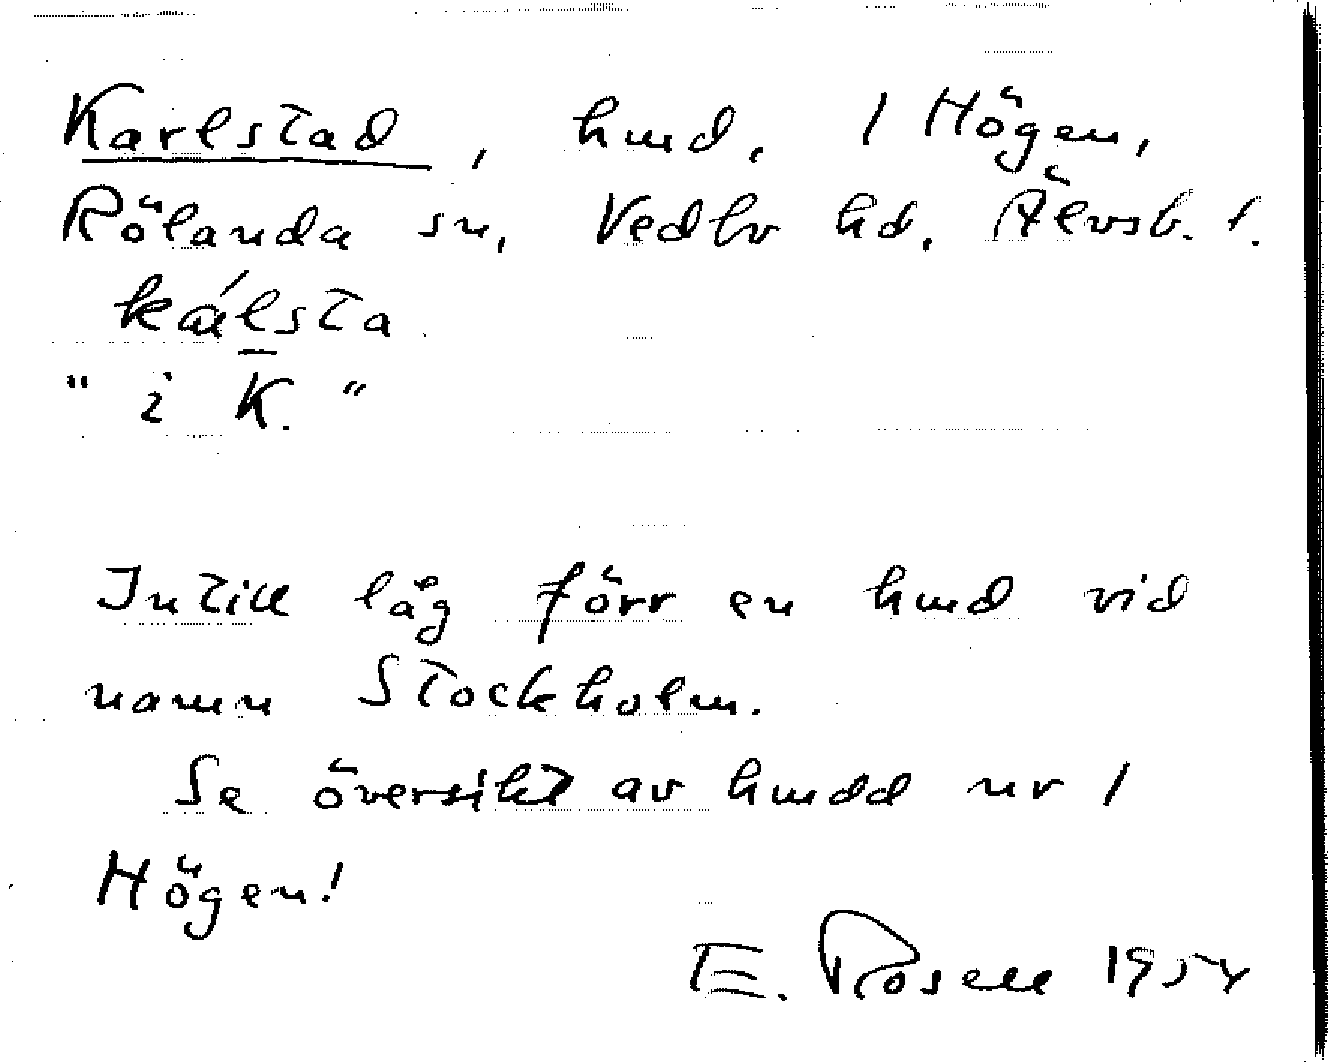 Karlstad, hmd, 1 Högen,
Rölanda sn, Vedbo hd. Älvsb. l.
kálsta
"i K."
Intill låg förr en hmd vid
namn Stockholm.
Se översikt av hmdd nr 1
Högen!
E. Rosell 1954